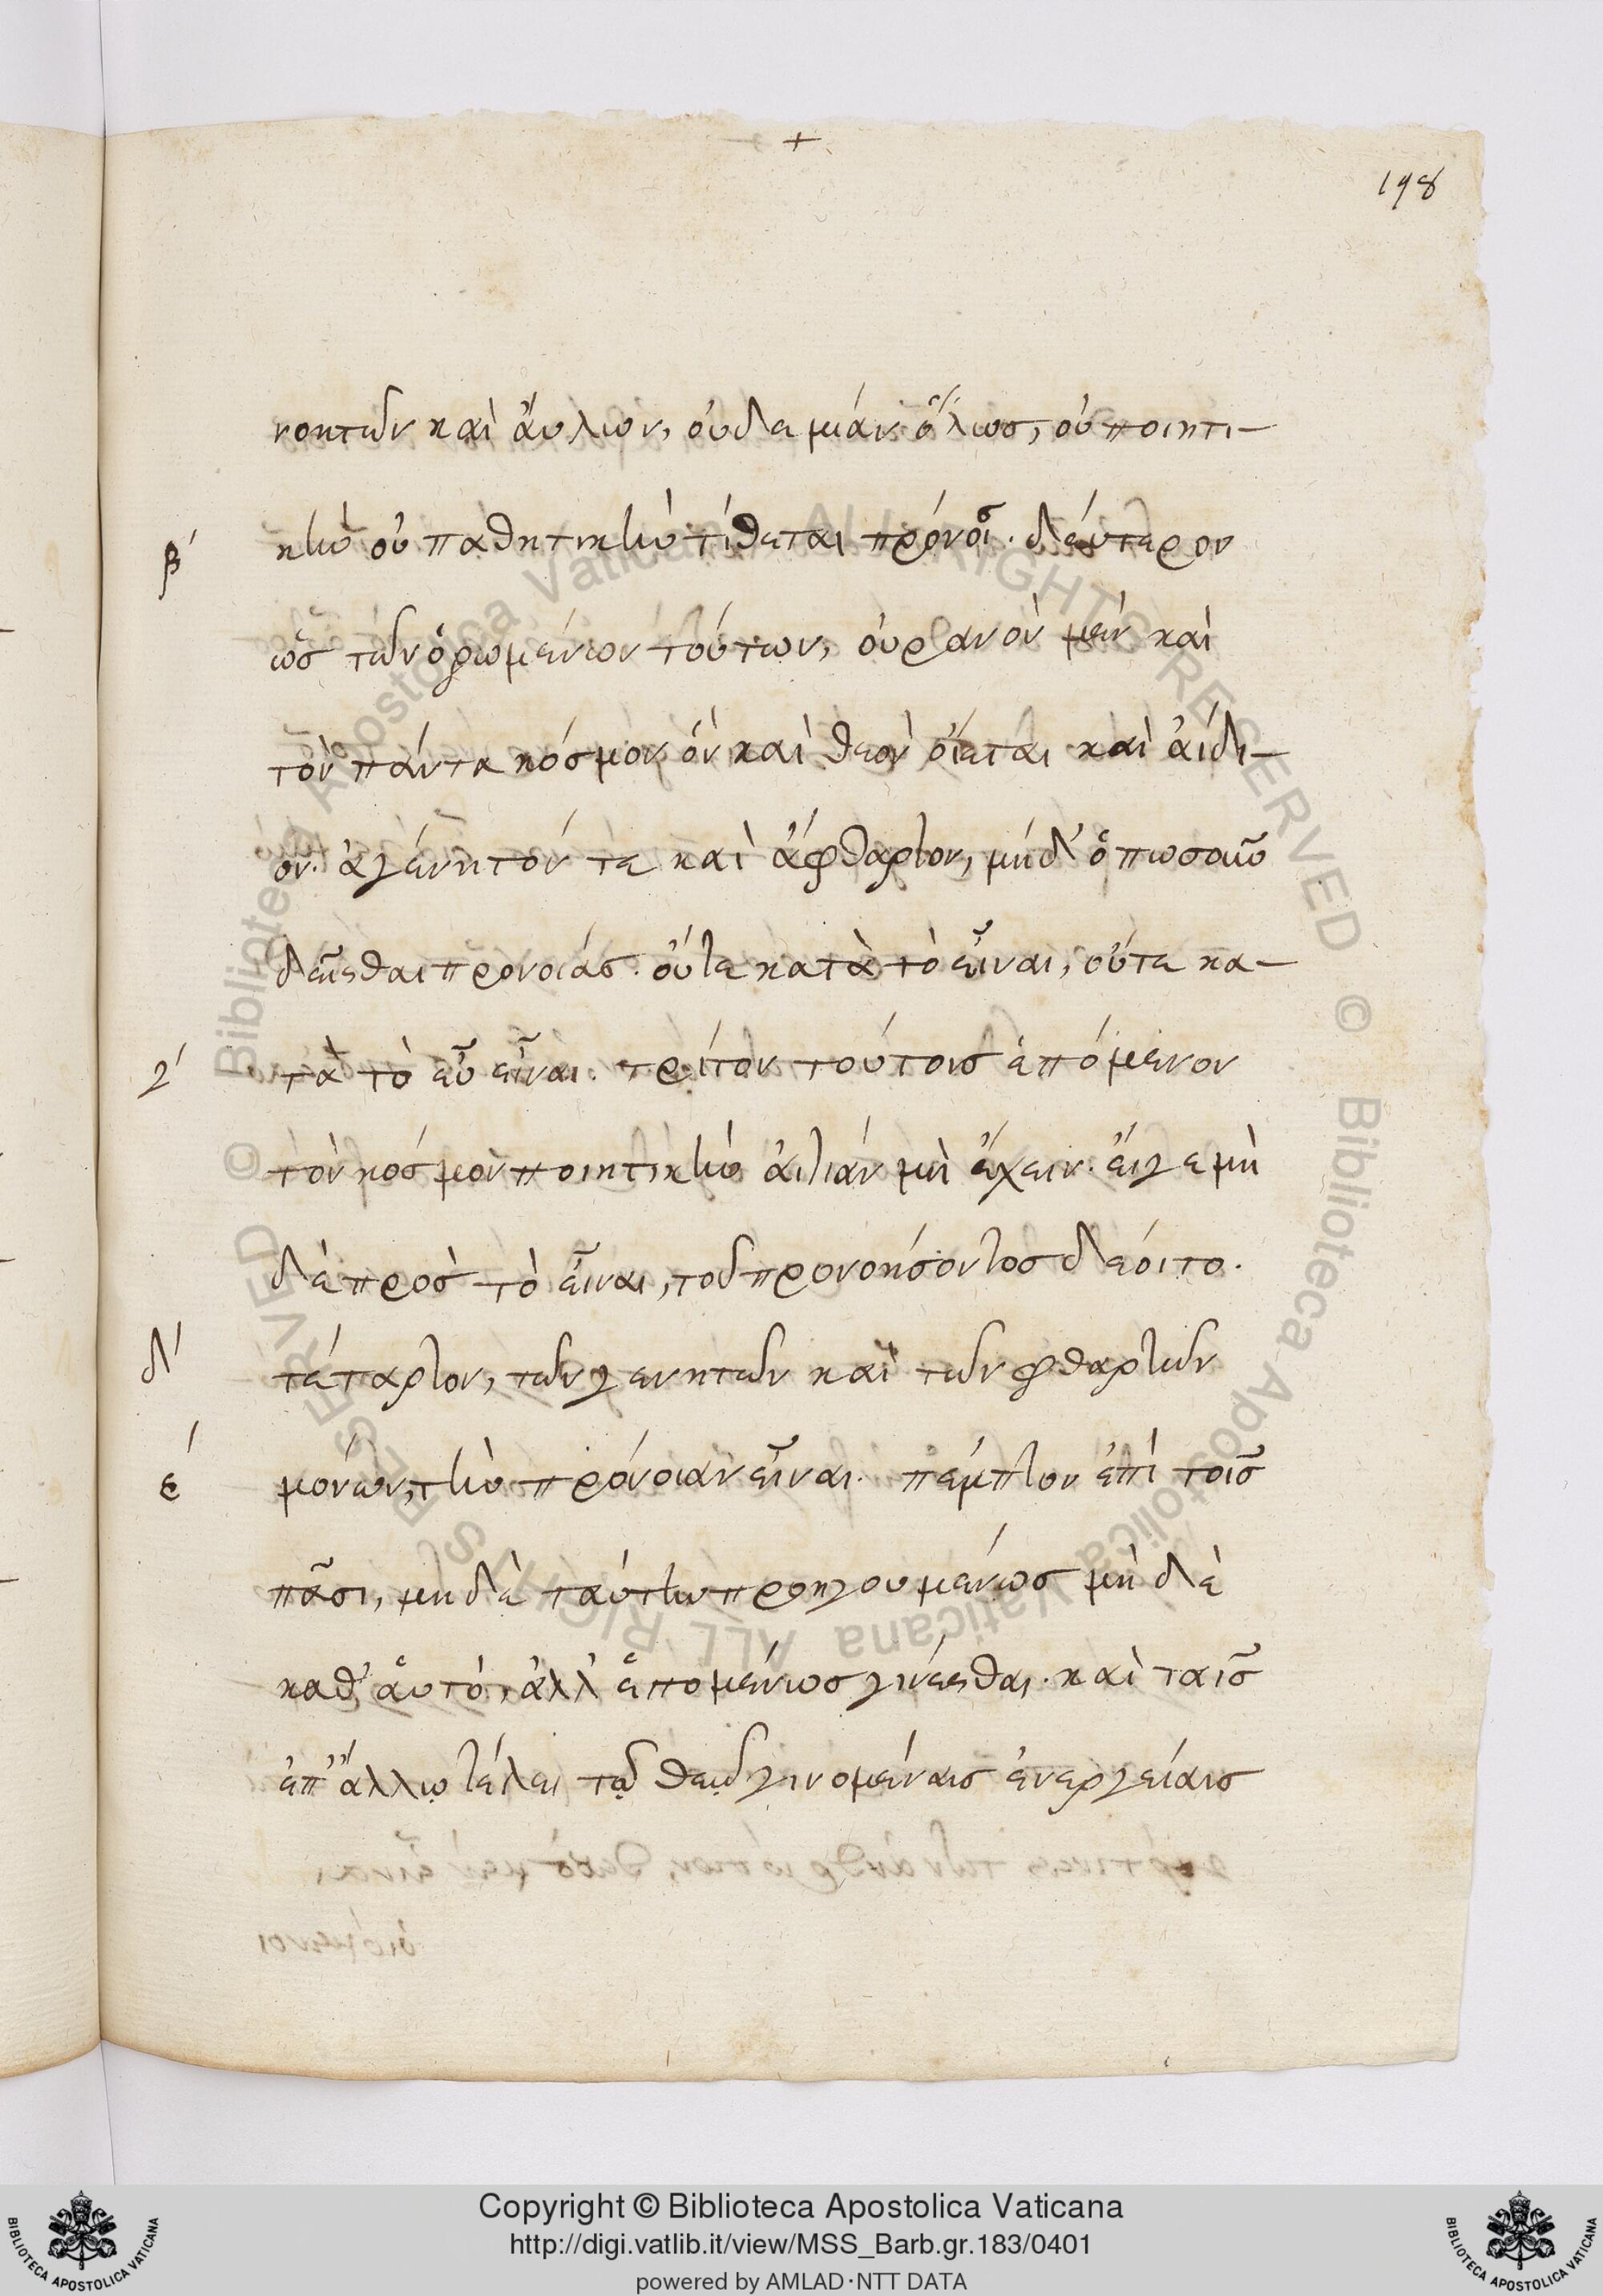 +
198
νοητῶν καὶ ἀΰλων, οὐδεμίαν ὅλως, οὐ ποιητι-
β΄ κὴν οὐ παθητικὴν τίθεται πρόνοι. δεύτερον
ὡς τῶν ὁρωμένων τούτων, οὐρανὸν μὲν καὶ
τὸν πάντα κόσμον ὃν καὶ θεὸν οἴεται καὶ ἀΐδι-
ον. ἀγένητόν τε καὶ ἄφθαρτον, μήδ' ὁπωσοῦν
δεῖσθαι προνοίας. οὔτε κατὰ τὸ εἶναι, οὔτε κα-
γ΄ τὰ τὸ εὖ εἶναι. τρίτον τούτοις ἑπόμενον
τὸν κόσμον ποιητικὴν αἰτίαν μὴ ἔχειν. εἴγε μὴ
δὲ πρὸς τὸ εἶναι, τοῦ προνοήσοντος δέοιτο.
δ΄ τέταρτον, τῶν γενητῶν καὶ τῶν φθαρτῶν
ε΄ μόνων, τὴν πρόνοιαν εἶναι. πέμπτον ἐπὶ τοῖς
πᾶσι, μηδὲ ταύτην προηγουμένως μὴ δὲ
καθ' αὑτό, ἀλλ' ἑπομένως γίνεσθαι. καὶ ταῖς
ἐπ' ἄλλῳ τέλει τῷ θεῷ γινομέναις ἐνεργείαις
Copyright © Biblioteca Apostolica Vaticana
http://digi.vatlib.it/view/MSS_Barb.gr.183/0401
powered by AMLAD·NTT DATA
BIBLIOTECA APOSTOLICA VATICANA
BIBLIOTECA APOSTOLICA VATICANA
© Biblioteca Apostolica Vaticana ALL RIGHTS RESERVED © Biblioteca Apostolica Vaticana ALL RIGHTS RESERVED